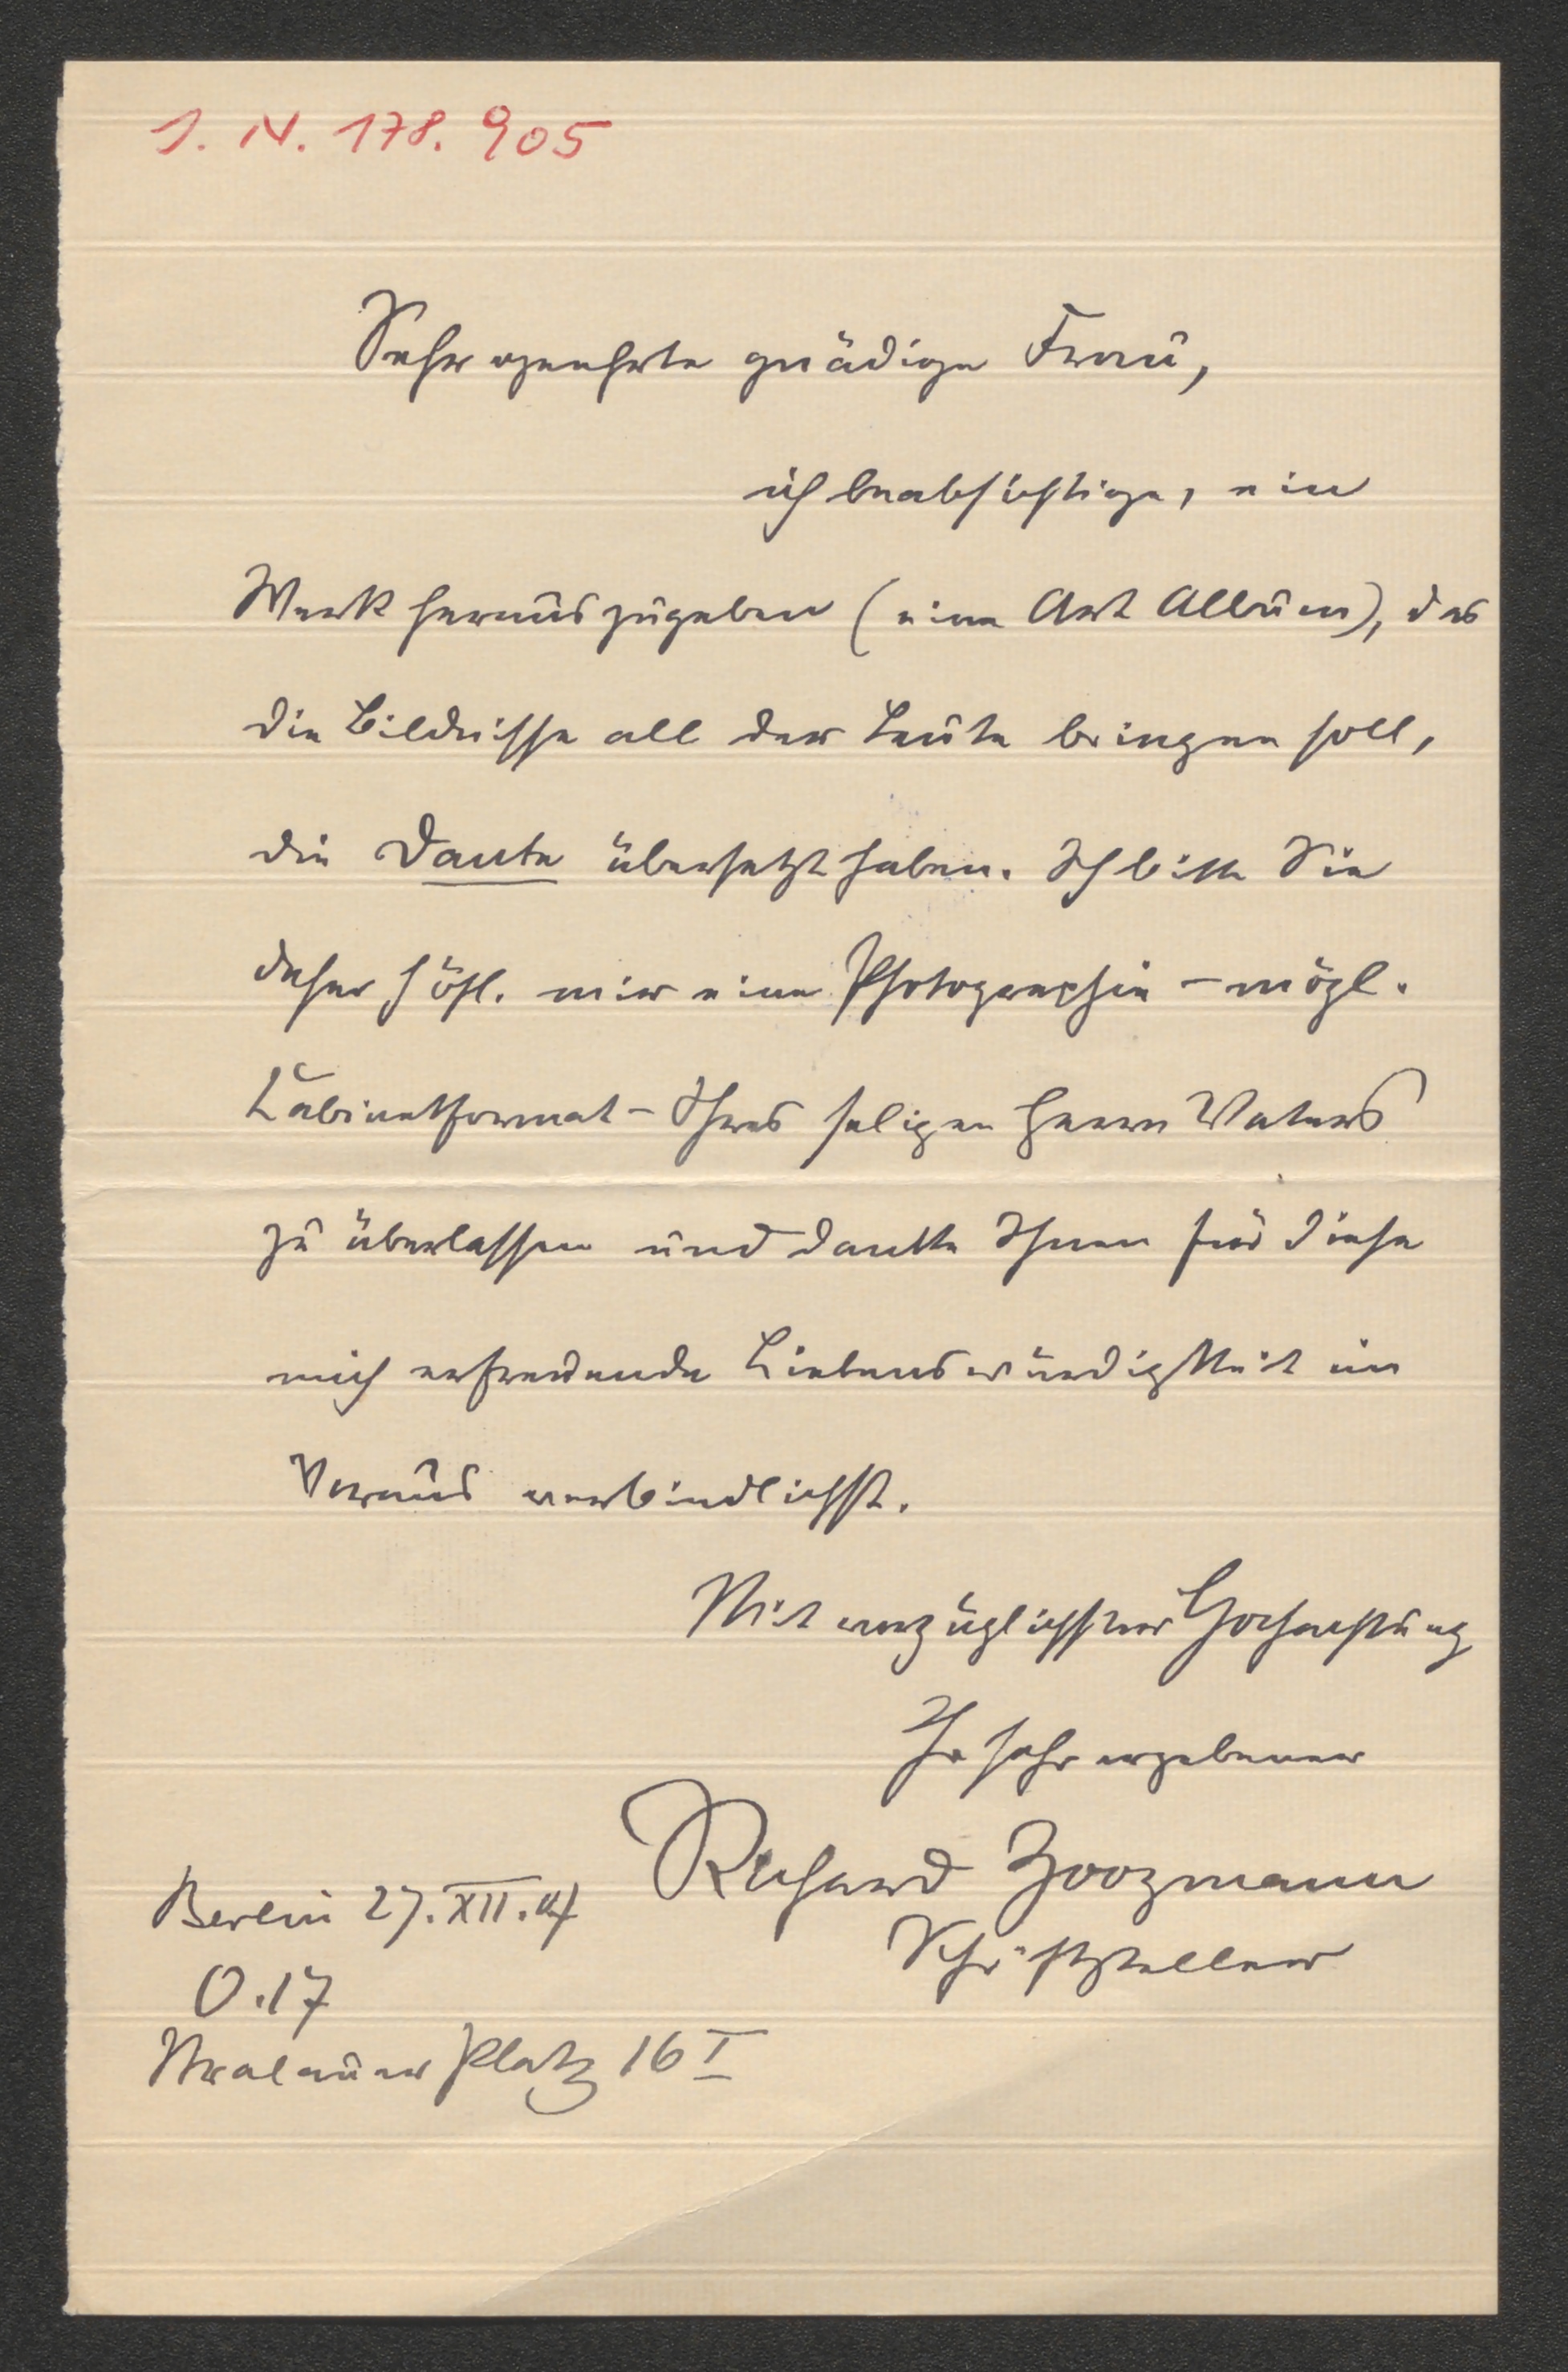 I. N. 178.905
Sehr geehrte gnädige Frau,
ich beabsichtige, ein
Werk herauszugeben (eine Art Album), das
die Bildnisse all der Leute bringen soll,
die Dante übersetzt haben. Ich bitte Sie
daher höfl. mir eine Photographie – mögl.
Cabinetformat – Ihres seligen Herrn Vaters
zu überlassen und danke Ihnen für diese
mich erfreuende Liebenswürdigkeit im
Voraus verbindlichst.
Mit vorzüglichster Hochachtung
Ihr sehr ergebener
Richard Zoozmann
Schriftsteller
Berlin 27.XII.07
O.17
Stralauer Platz 16 I